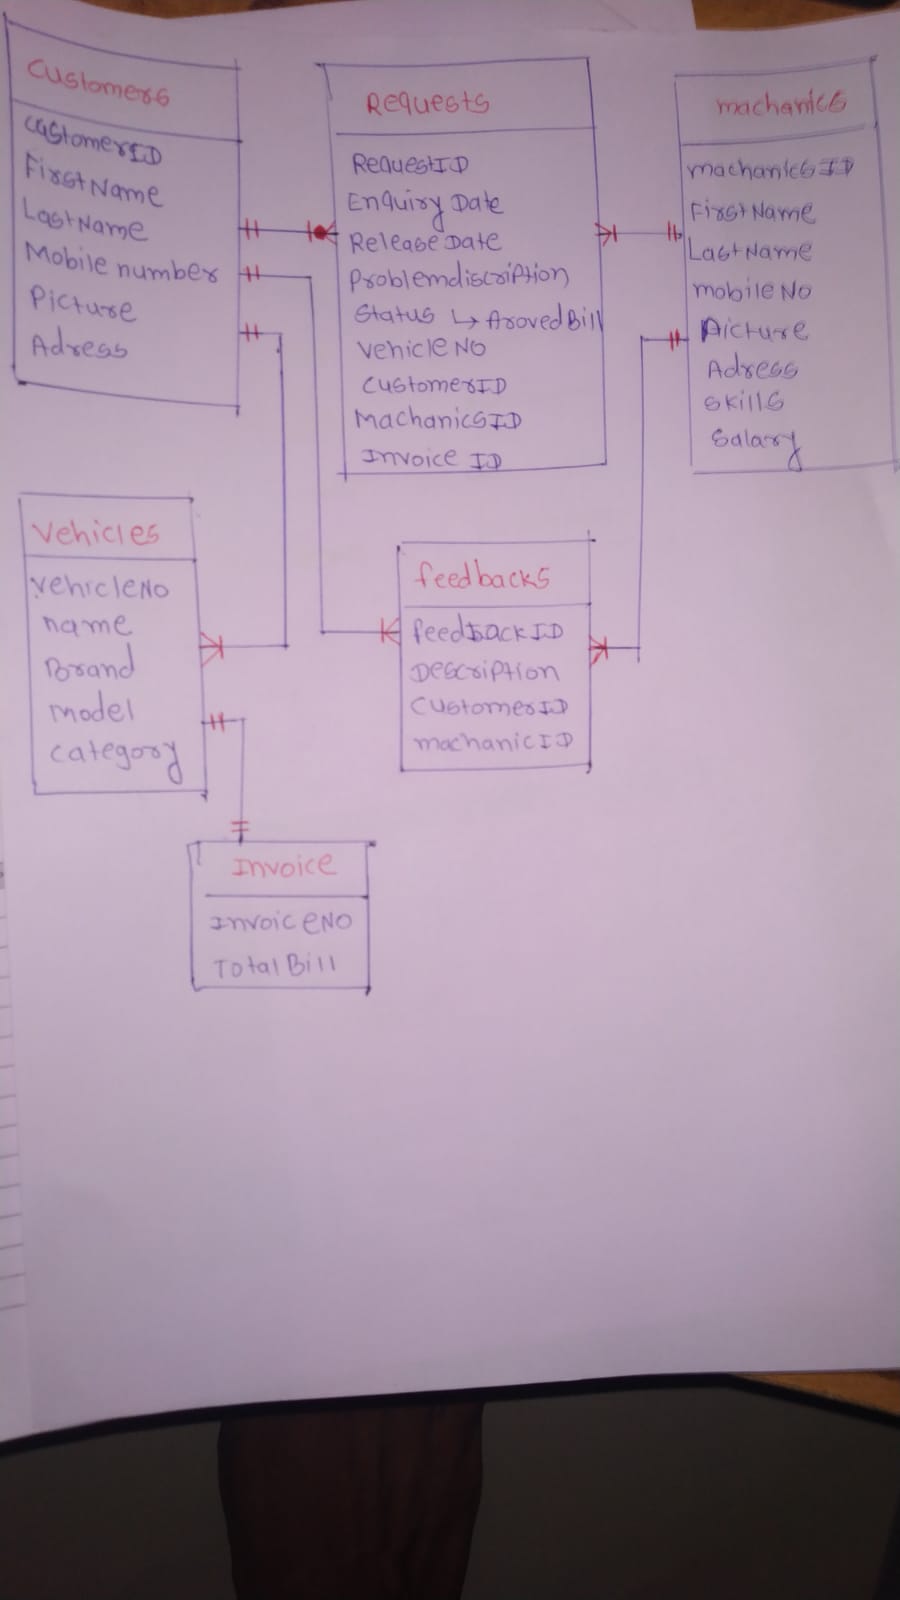 Customers
CustomerID
FirstName
LastName
Mobile number
Picture
Adress
Requests
RequestID
Enquiry Date
Release Date
Problemdiscription
Status ↳ ArovedBill
vehicleNO
CustomerID
MachanicsID
Invoice ID
machanics
machanicsID
FirstName
LastName
mobileNo
Picture
Adress
skills
salary
Vehicles
vehicleNO
name
Brand
model
category
feedbacks
feedbackID
Description
CustomerID
machanicID
Invoice
InvoiceNO
TotalBill